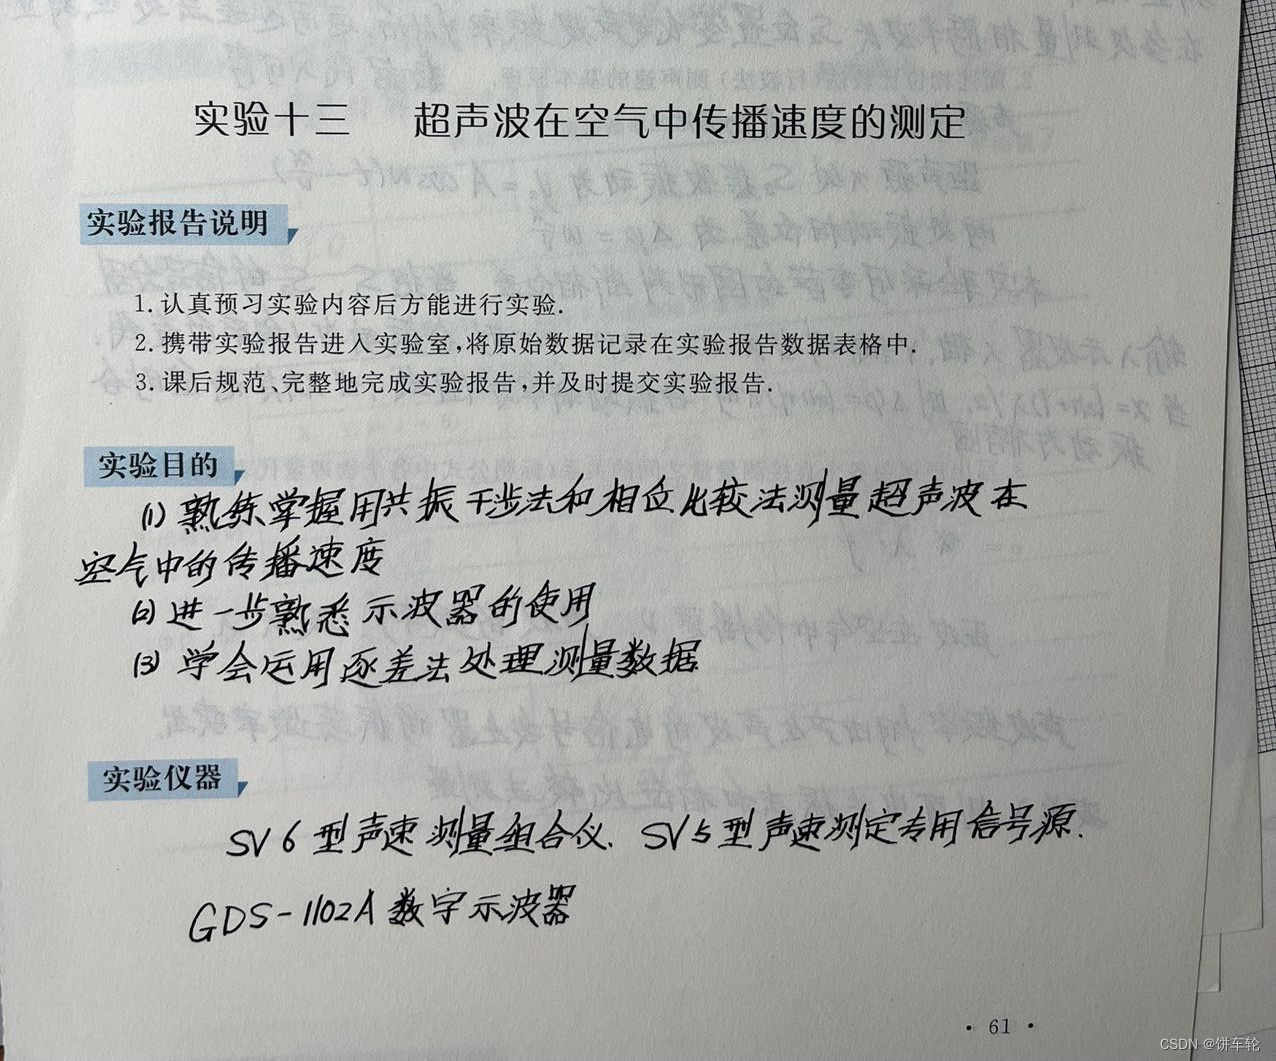 实验十三 超声波在空气中传播速度的测定
实验报告说明
1. 认真预习实验内容后方能进行实验.
2. 携带实验报告进入实验室,将原始数据记录在实验报告数据表格中.
3. 课后规范、完整地完成实验报告,并及时提交实验报告.
实验目的
(1) 熟练掌握用共振干涉法和相位比较法测量超声波在
空气中的传播速度
(2) 进一步熟悉示波器的使用
(3) 学会运用逐差法处理测量数据
实验仪器
SV6型声速测量组合仪. SV5型声速测定专用信号源.
GDS-1102A数字示波器
· 61 ·
CSDN @饼车轮